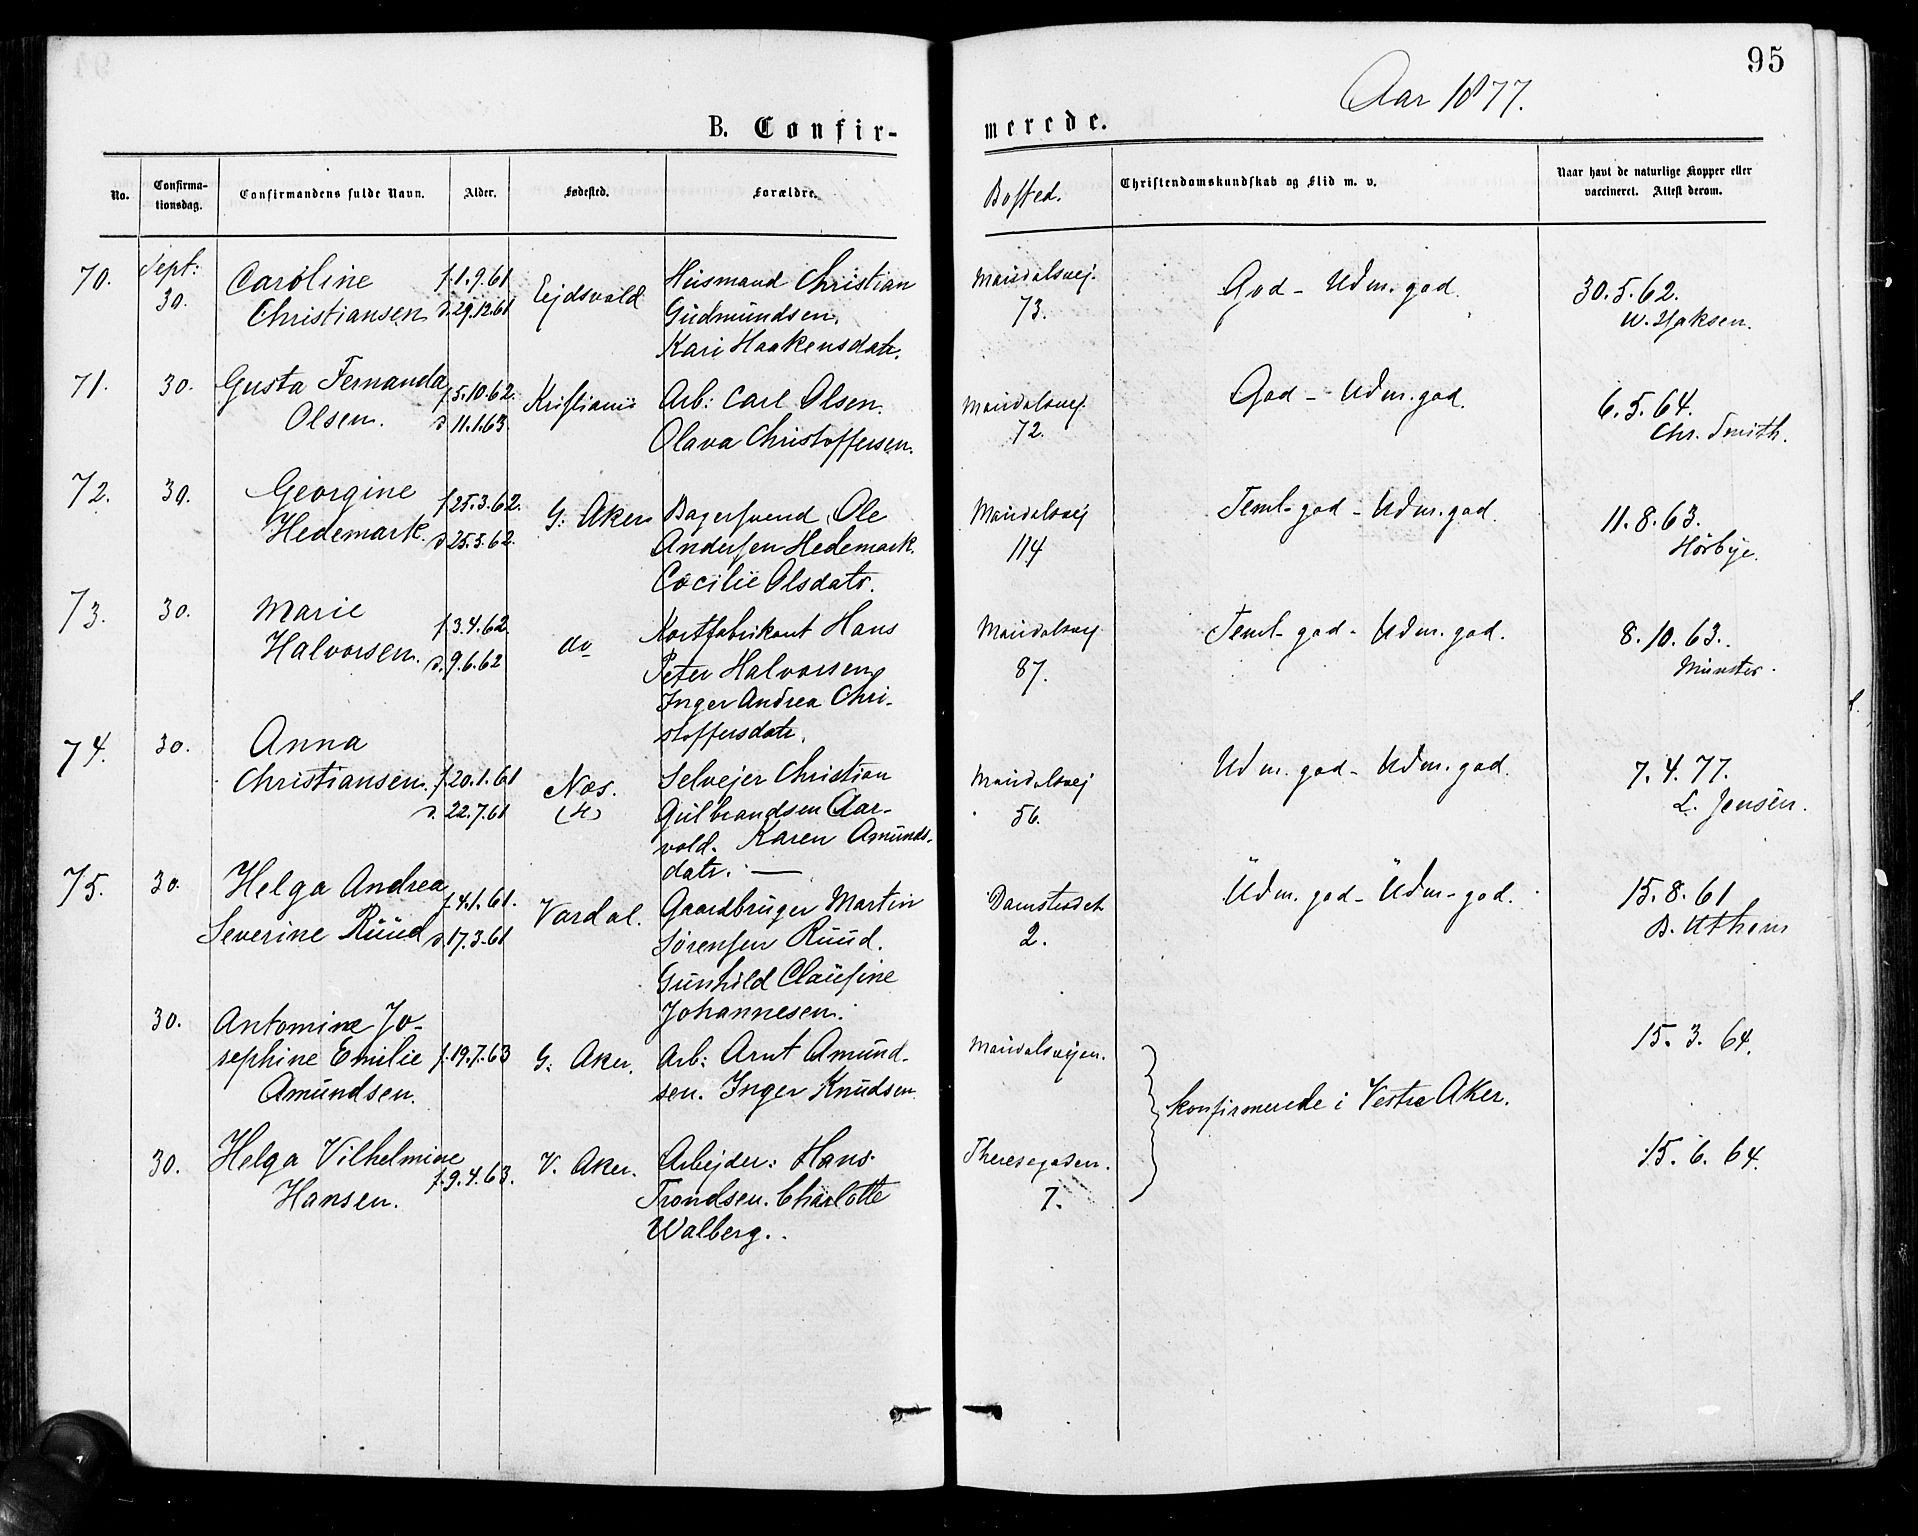 95
Aar 1877.
B. Confir-
merede.
No.
Confirma-
tionsdag.
Confirmandens fulde Navn.
Alder.
Fødested.
Forældre.
Bosted.
Christendomskundskab og Flid m. v.
Naar havt de naturlige Kopper eller
vaccineret. Attest derom.
70.
Sept:
30.
Caroline
Christiansen
f. 1.9.61
d. 29.12.61
Ejdsvold
Husmand Christian
Gudmundsen.
Kari Haakensdatr.
Maridalsvej.
73.
God - Udm. god.
30.5.62.
71.
30.
Gusta Fernanda
Olsen.
f. 5.10.62.
d. 11.1.63.
Kristiania
Arb: Carl Olsen.
Olava Christoffersen.
Maridalsvej.
72.
God - Udm. god.
6.5.64.
Chr. Smith.
72.
30.
Georgine
Hedemark.
f. 25.3.62.
d. 25.5.62.
G: Aker
Bagersvend Ole
Andersen Hedemark.
Cæcilie Olsdatr.
Maridalsvej
114
Teml. god - Udm. god.
11.8.63.
Hørbye.
73.
30.
Marie
Halvorsen.
f. 3.4.62.
d. 9.6.62
do
Kortfabrikant Hans
Peter Halvorsen
Inger Andrea Chri-
stoffersdatr.
Maridalsvej
87.
Teml. god - Udm. god.
8.10.63.
Münster.
74.
30.
Anna
Christiansen.
f. 20.1.61
d. 22.7.61
Næs.
(H)
Selvejer Christian
Gulbrandsen Aar-
vold. Karen Amunds-
datr.
Maridalsvej
56.
Udm. god - Udm. god.
7.4.77.
L. Jensen.
75.
30.
Helga Andrea
Severine Ruud
f. 4.1.61.
d. 17.3.61
Vardal.
Gaardbruger Martin
Sørensen Ruud.
Gunhild Claufine
Johannesen.
Damstredet
2.
Udm. god - Udm. god.
15.8.61
B. Uthem
30.
Antomine Jo-
sephine Emilie
Amundsen.
f. 19.7.63
G: Aker.
Arb: Arnt Amund-
sen. Inger Knudsen
Maridalsvejen.
konfirmerede i Vestre Aker.
15.3.64.
30.
Helga Vilhelmine
Hansen.
f. 9.4.63.
V. Aker.
Arbejder: Hans
Trondsen. Charlotte
Walberg.
Theresegaden.
7.
15.6.64.